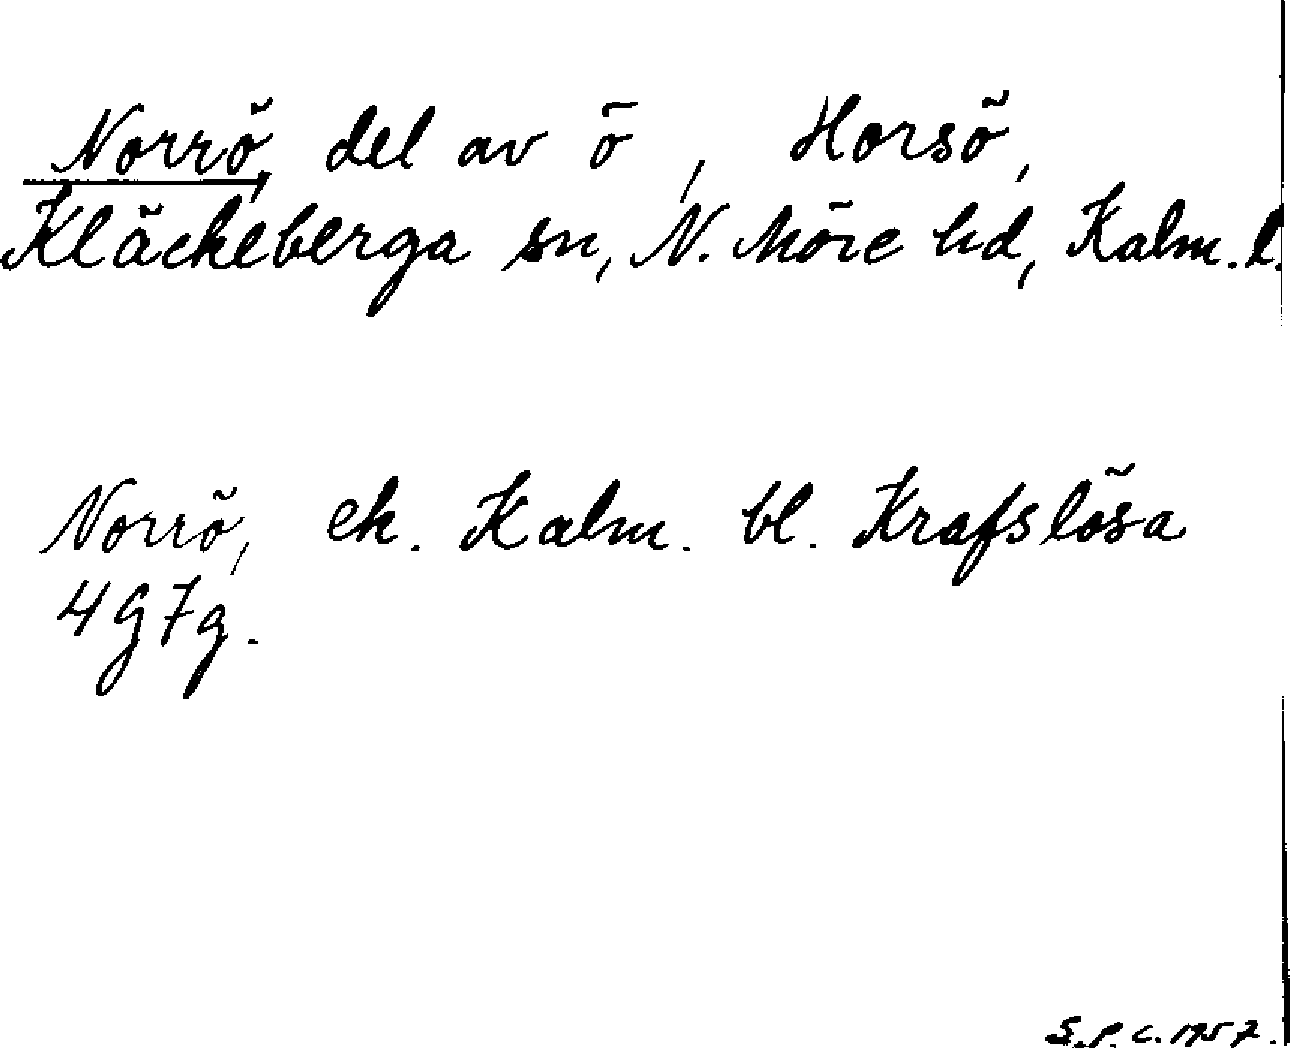 Norrö, del av ö, Horsö,
Kläckeberga sn, N. Möre hd, Kalm. l.
Norrö, ek. Kalm. bl. Krafslösa
4G7g.
S.P.C. 1957.